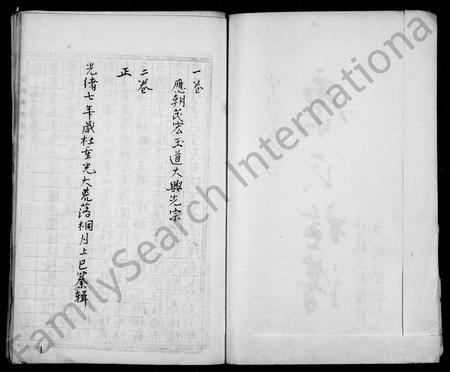 一卷
應朝民宏玉道大興光宗
二卷
正
光緒七年歲杜至光大荒落桐月上巳纂輯
1
FamilySearch International